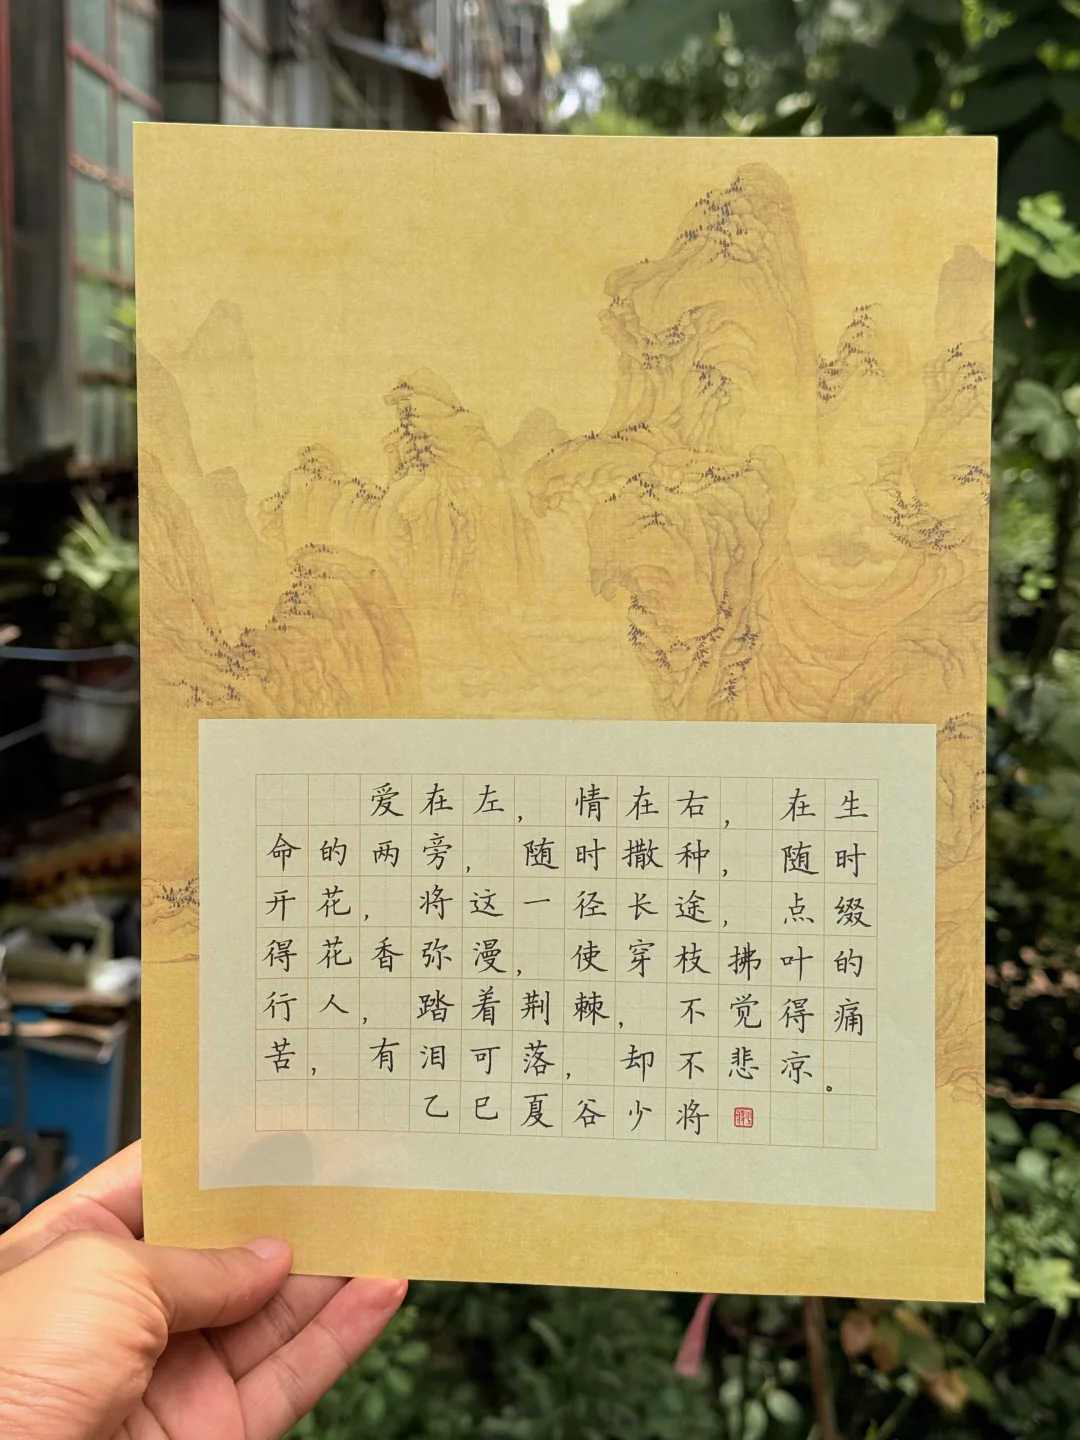 爱在左，情在右，在生
命的两旁，随时撒种，随时
开花，将这一径长途，点缀
得花香弥漫，使穿枝拂叶的
行人，踏着荆棘，不觉得痛
苦，有泪可落，却不悲凉。
乙巳夏谷少将